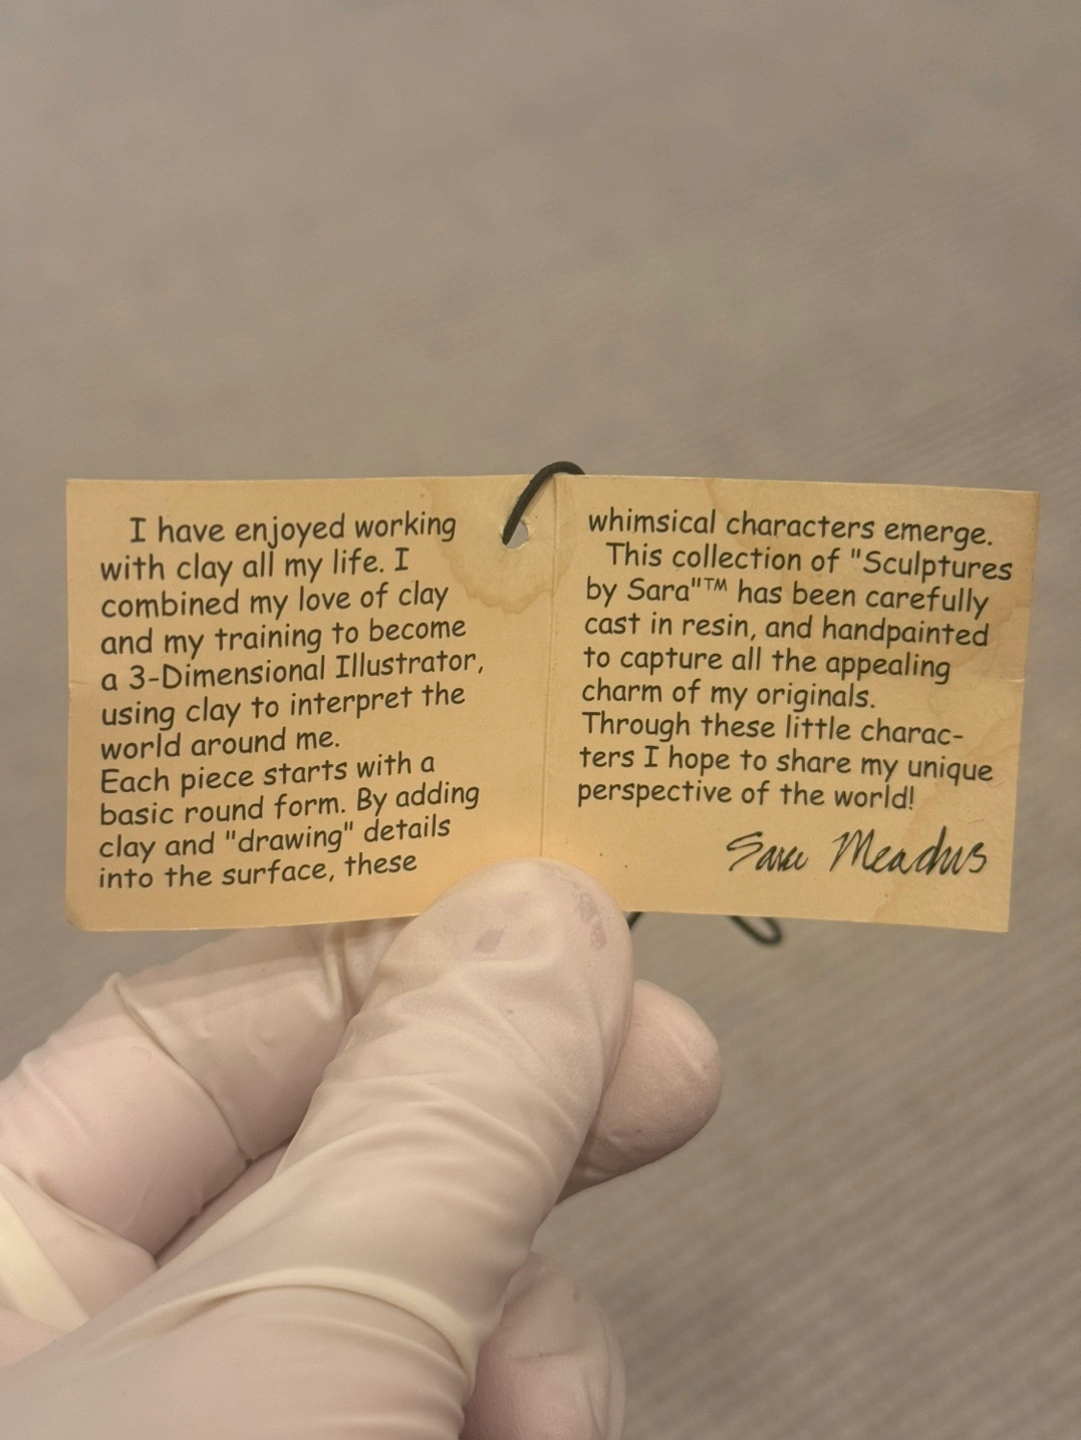 I have enjoyed working
with clay all my life. I
combined my love of clay
and my training to become
a 3-Dimensional Illustrator,
using clay to interpret the
world around me.
Each piece starts with a
basic round form. By adding
clay and "drawing" details
into the surface, these
whimsical characters emerge.
This collection of "Sculptures
by Sara"™ has been carefully
cast in resin, and handpainted
to capture all the appealing
charm of my originals.
Through these little charac-
ters I hope to share my unique
perspective of the world!
Sara Meadows